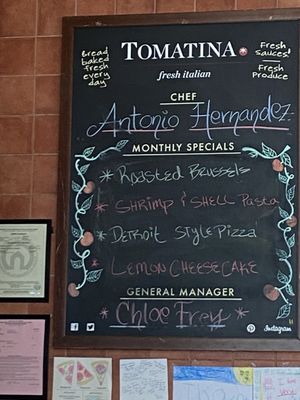 Bread
baked
fresh
every
day
TOMATINA
fresh italian
Fresh
Sauces!
Fresh
Produce
CHEF
Antonio Hernandez
MONTHLY SPECIALS
* Roasted Brussels
* Shrimp & Shell Pasta
* Detroit Style Pizza
* Lemon Cheesecake
GENERAL MANAGER
* Chloe Frey *
Instagram